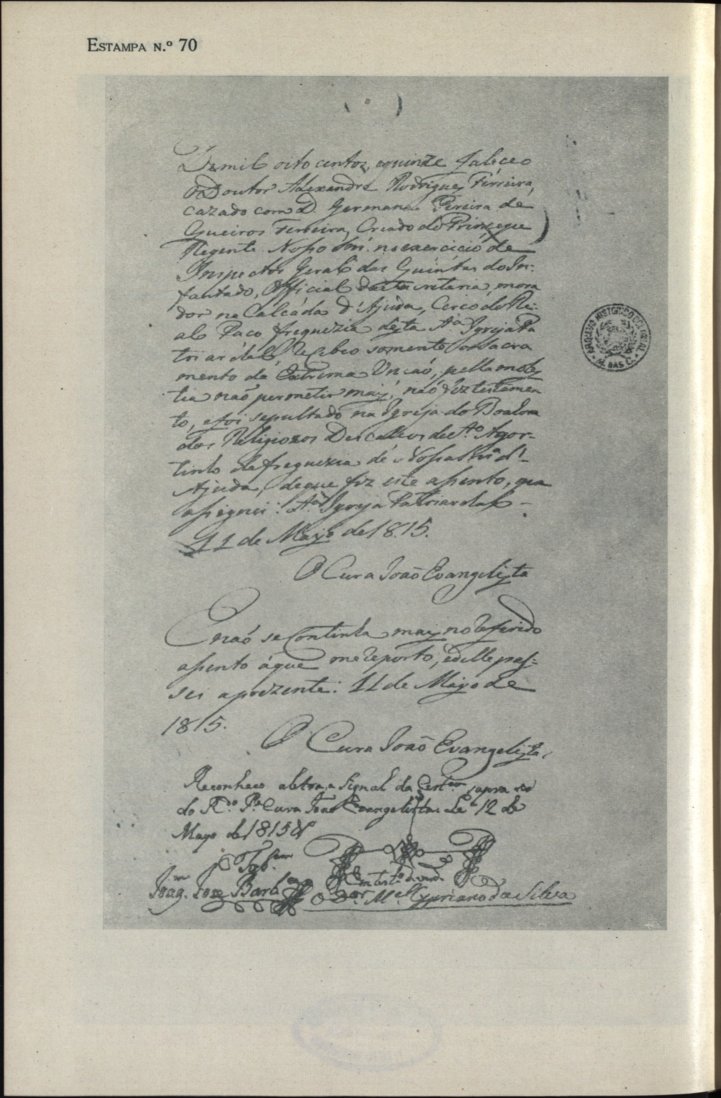 ESTAMPA N.º 70
De mil oito centos, e quinze faleceo
o Doutor Alexandre Rodrigues Ferreira,
cazado com D. Germana Pereira de
Queiros Ferreira, Creado do Principe
Regente Nosso Snr. no exercicio de
Inspector Geral das Quintas do In-
fantado, Official da Secretaria, mora
dor na Calçada d'Ajuda, Cerco do Re-
al Paco, freguezia desta Sta. Igreja Pa
triarchal. Recebeo somente o Sacra
mento da Extrema Unçaõ, pella moles
tia naõ permetir mais; naõ fez testamen
to, e foi sepultado na Igreja do Boahora
dos Religiozos Descalcos de Sto. Agos-
tinho da freguezia de Nossa Snra. d'
Ajuda, de que fiz este assento, que
assignei. Sta. Igreja Patriarchal
11 de Mayo de 1815.
O Cura Joaõ Evangelista
E naõ se continha mais no referido
assento a que me reporto, e delle pas-
sei a prezente: 11 de Mayo de
1815.
O Cura Joaõ Evangelista
Reconheço a letra, e signal da Certam supra ser
do Rdo. Pe. Cura João Evangelista. Lxa. 12 de
Mayo de 1815
Joaqm. Joze Barboza
Mel. Cypriano da Silva
ARQUIVO HISTORICO COLONIAL
M. DAS C.